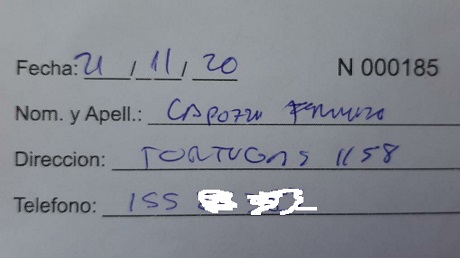 Fecha: 21 / 11 / 20 N 000185
Nom. y Apell.: CAPOZZI
Direccion: TORTUGAS 1158
Telefono: 155